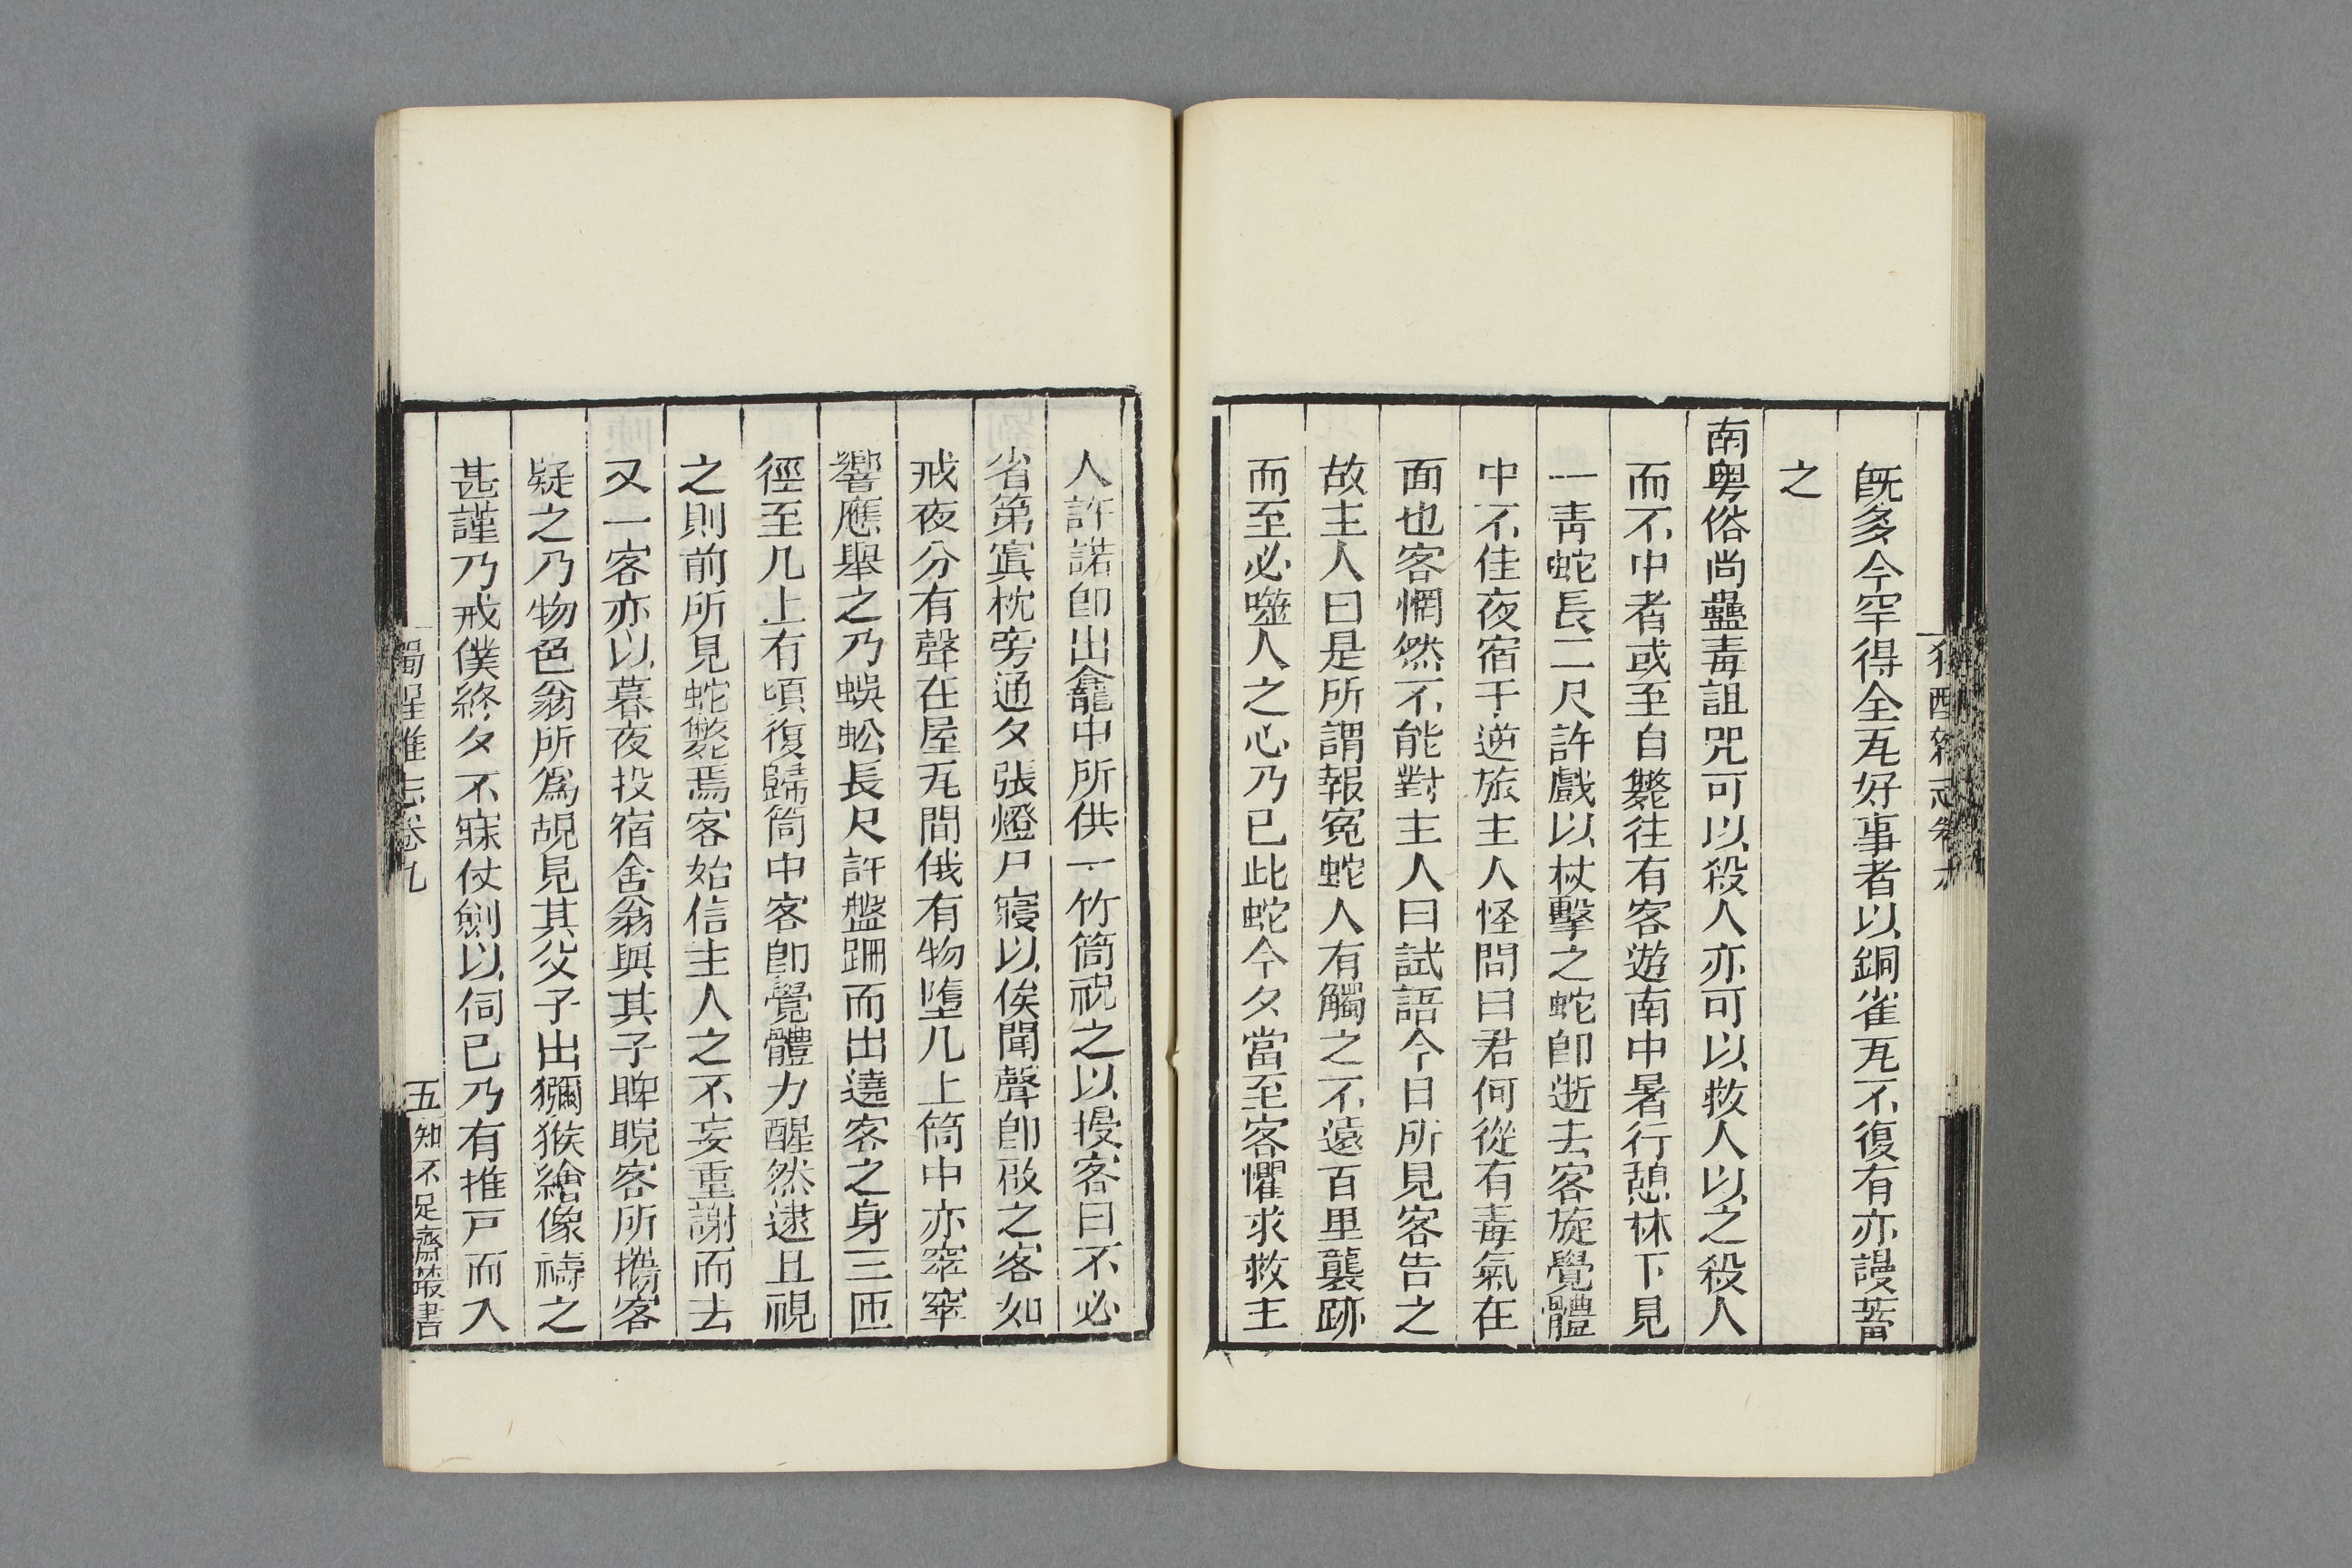 既多今罕得全瓦好事者以銅雀瓦不復有亦謾蓄
之
南粤俗尚蠱毒詛咒可以殺人亦可以救人以之殺人
而不中者或至自斃往有客遊南中暑行憩林下見
一青蛇長二尺許戲以杖擊之蛇卽逝去客旋覺體
中不佳夜宿于逆旅主人怪問曰君何從有毒氣在
面也客惘然不能對主人曰試語今日所見客告之
故主人曰是所謂報寃蛇人有觸之不遠百里襲跡
而至必噬人之心乃已此蛇今夕當至客懼求救主
人許諾卽出龕中所供一竹筒祝之以授客曰不必
省第寘枕旁通夕張燈尸寢以俟聞聲卽啟之客如
戒夜分有聲在屋瓦間俄有物墮几上筒中亦窣窣
響應舉之乃蜈蚣長尺許盤跚而出遶客之身三匝
徑至几上有頃復歸筒中客卽覺體力醒然逮旦視
之則前所見蛇斃焉客始信主人之不妄重謝而去
又一客亦以暮夜投宿舍翁與其子睥睨客所攜客
疑之乃物色翁所爲覘見其父子出獼猴繪像禱之
甚謹乃戒僕終夕不寐仗劍以伺已乃有推戶而入
獨醒雜志卷九
五
知不足齋叢書